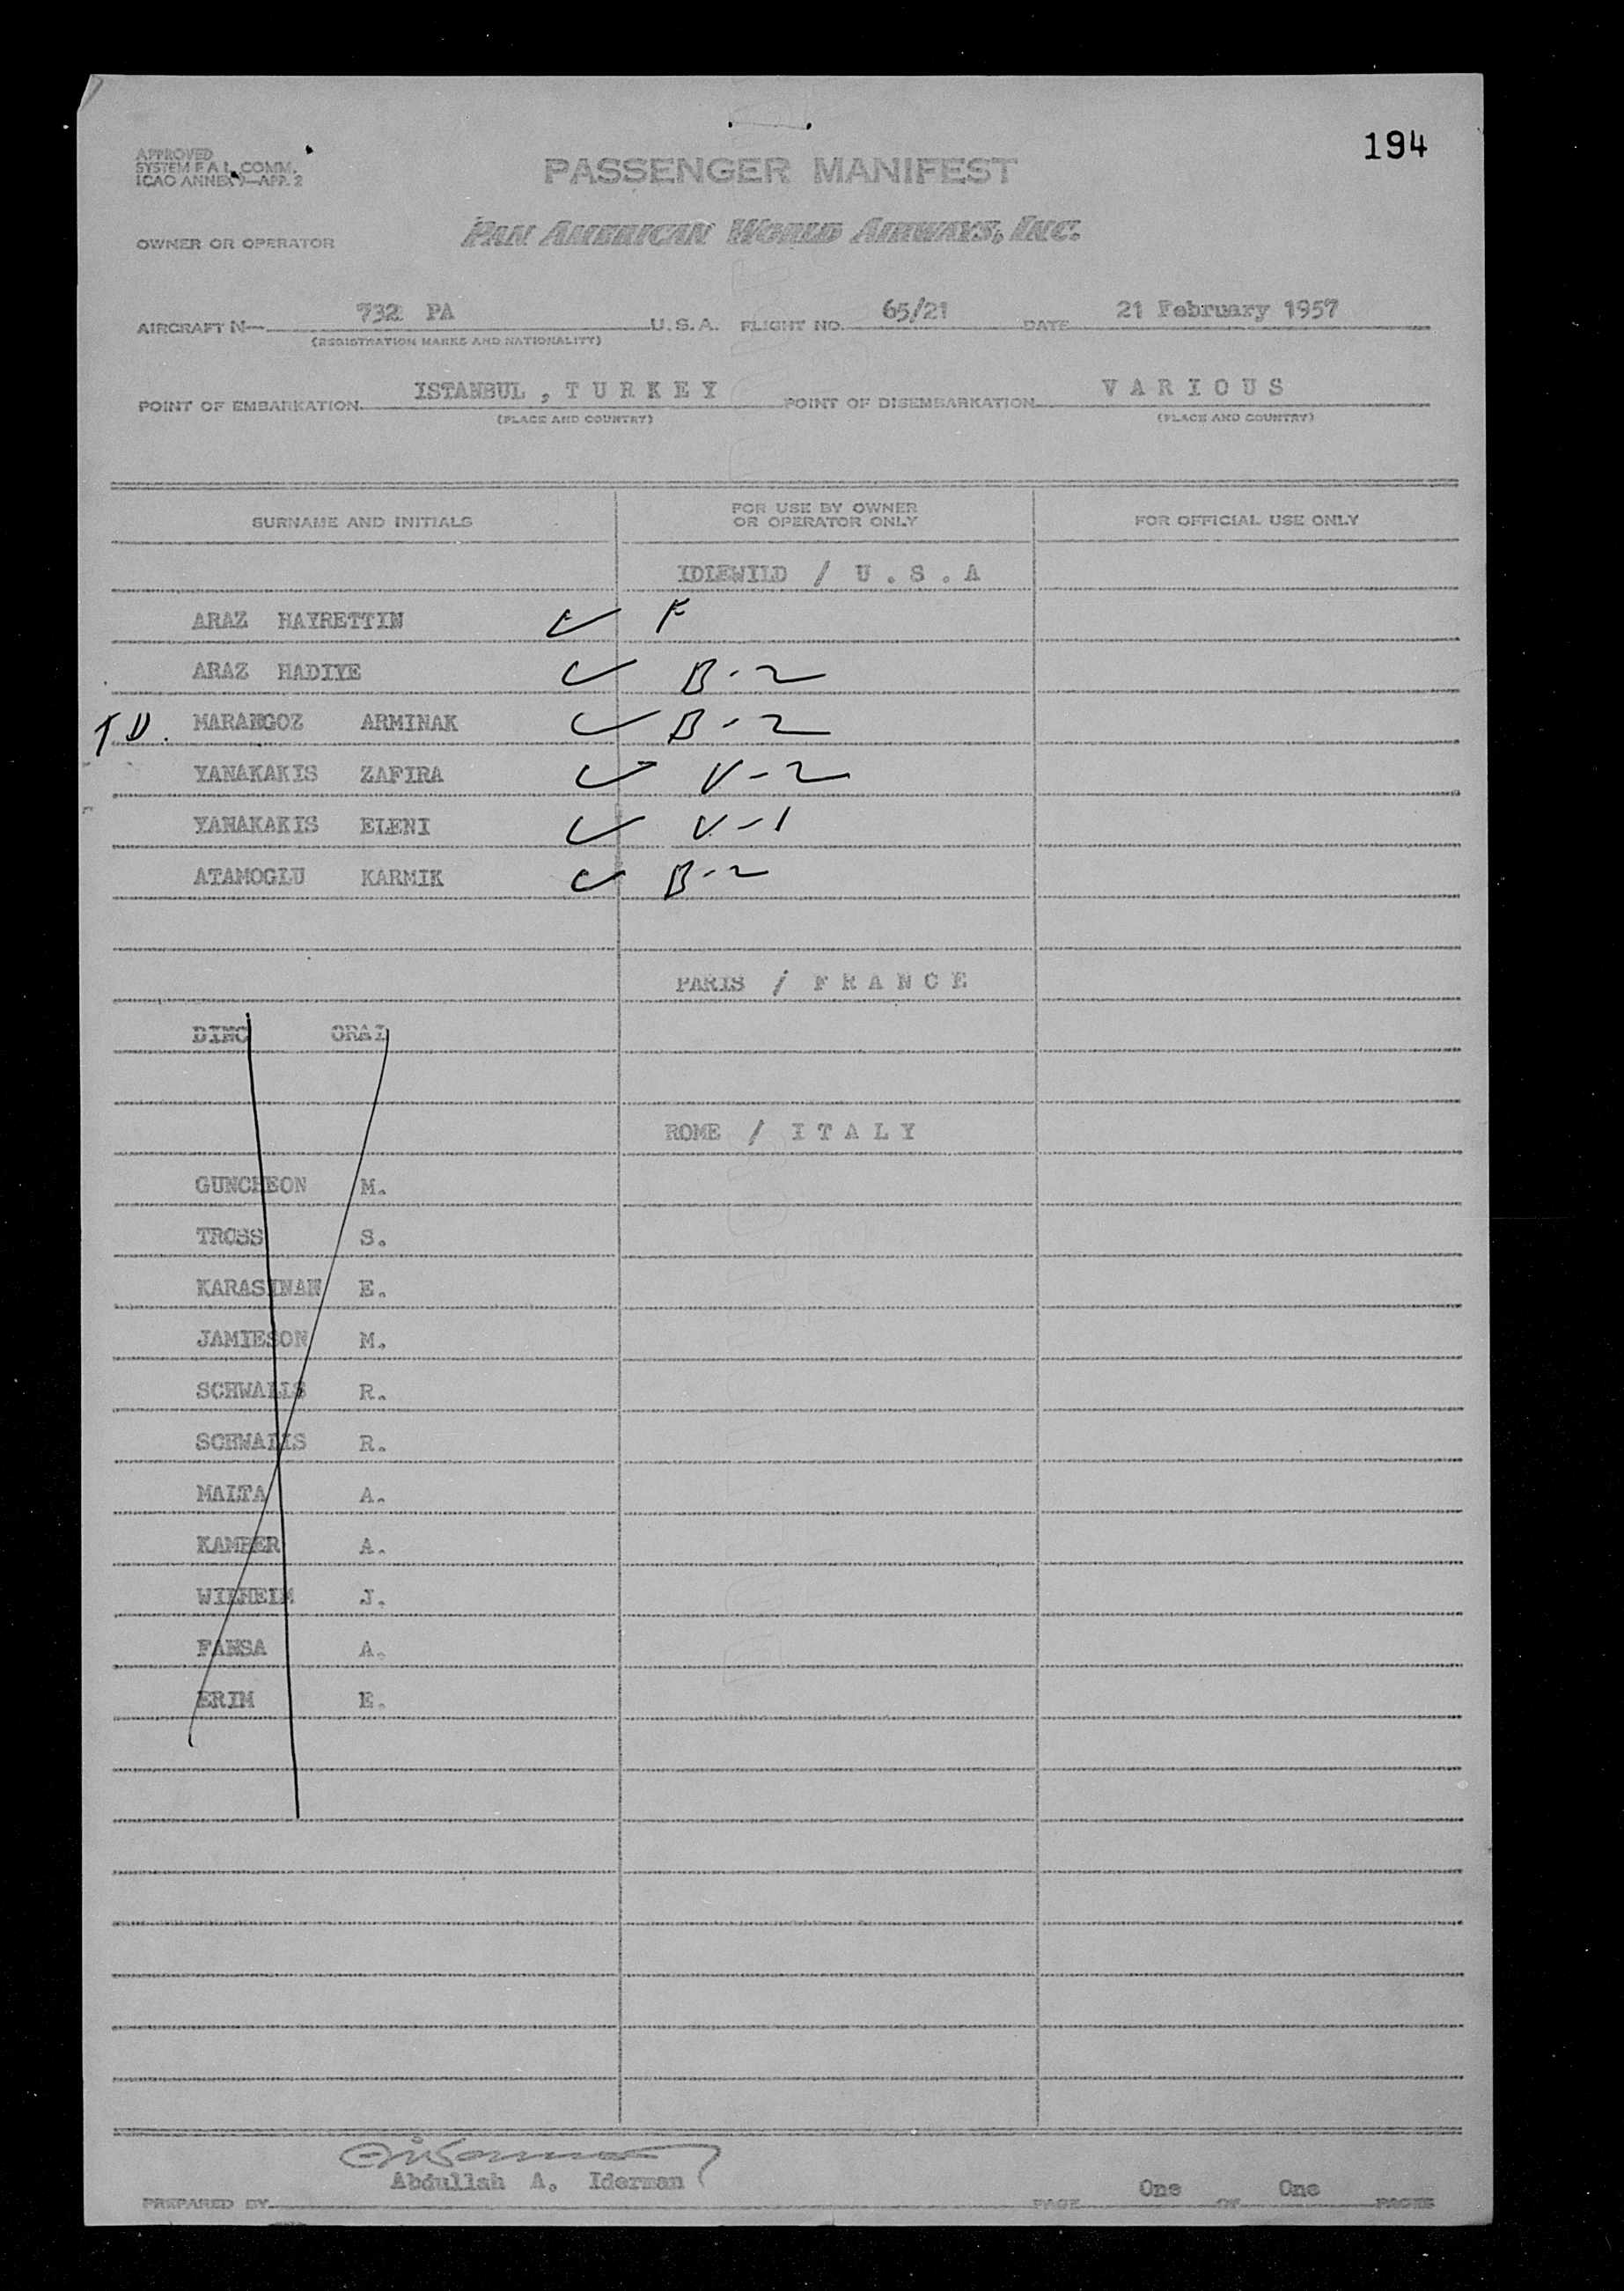 194
APPROVED
SYSTEM F A L COMM.
ICAO ANNEX 9—APP. 2
PASSENGER MANIFEST
OWNER OR OPERATOR PAN AMERICAN WORLD AIRWAYS, INC.
AIRCRAFT N— 732 PA U.S.A. FLIGHT NO. 65/21 DATE 21 February 1957
(REGISTRATION MARKS AND NATIONALITY)
POINT OF EMBARKATION ISTANBUL , T U R K E Y POINT OF DISEMBARKATION V A R I O U S
(PLACE AND COUNTRY) (PLACE AND COUNTRY)
SURNAME AND INITIALS FOR USE BY OWNER OR OPERATOR ONLY FOR OFFICIAL USE ONLY
IDLEWILD / U . S . A
ARAZ HAYRETTIN ✓ F
ARAZ HADIYE ✓ B-2
T.D. MARANGOZ ARMINAK ✓ B-2
YANAKAKIS ZAFIRA ✓ V-2
YANAKAKIS ELENI ✓ V-1
ATAMOGLU KARMIK ✓ B-2
PARIS / F R A N C E
DINC ORAL
ROME / I T A L Y
GUNCHEON M.
TROSS S.
KARASINAN E.
JAMIESON M.
SCHWALIS R.
SCHWALIS R.
MALTA A.
KAMBER A.
WILHELM J.
FANSA A.
ERIM E.
Abdullah A. Iderman
PREPARED BY PAGE One OF One PAGES